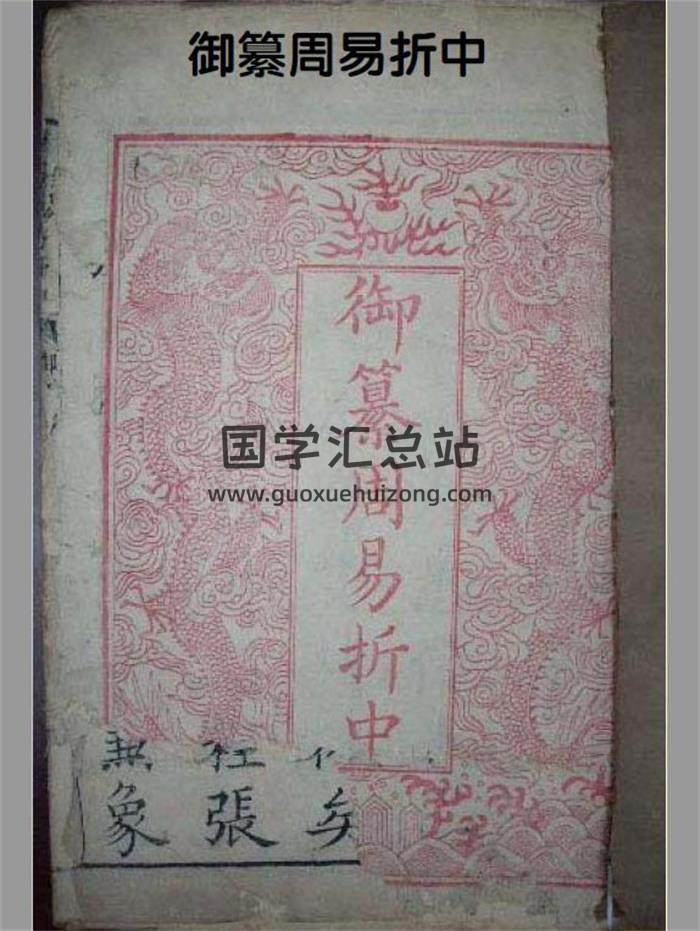 御纂周易折中
御纂周易折中
国学汇总站
www.guoxuehuizong.com
無 社
象 張